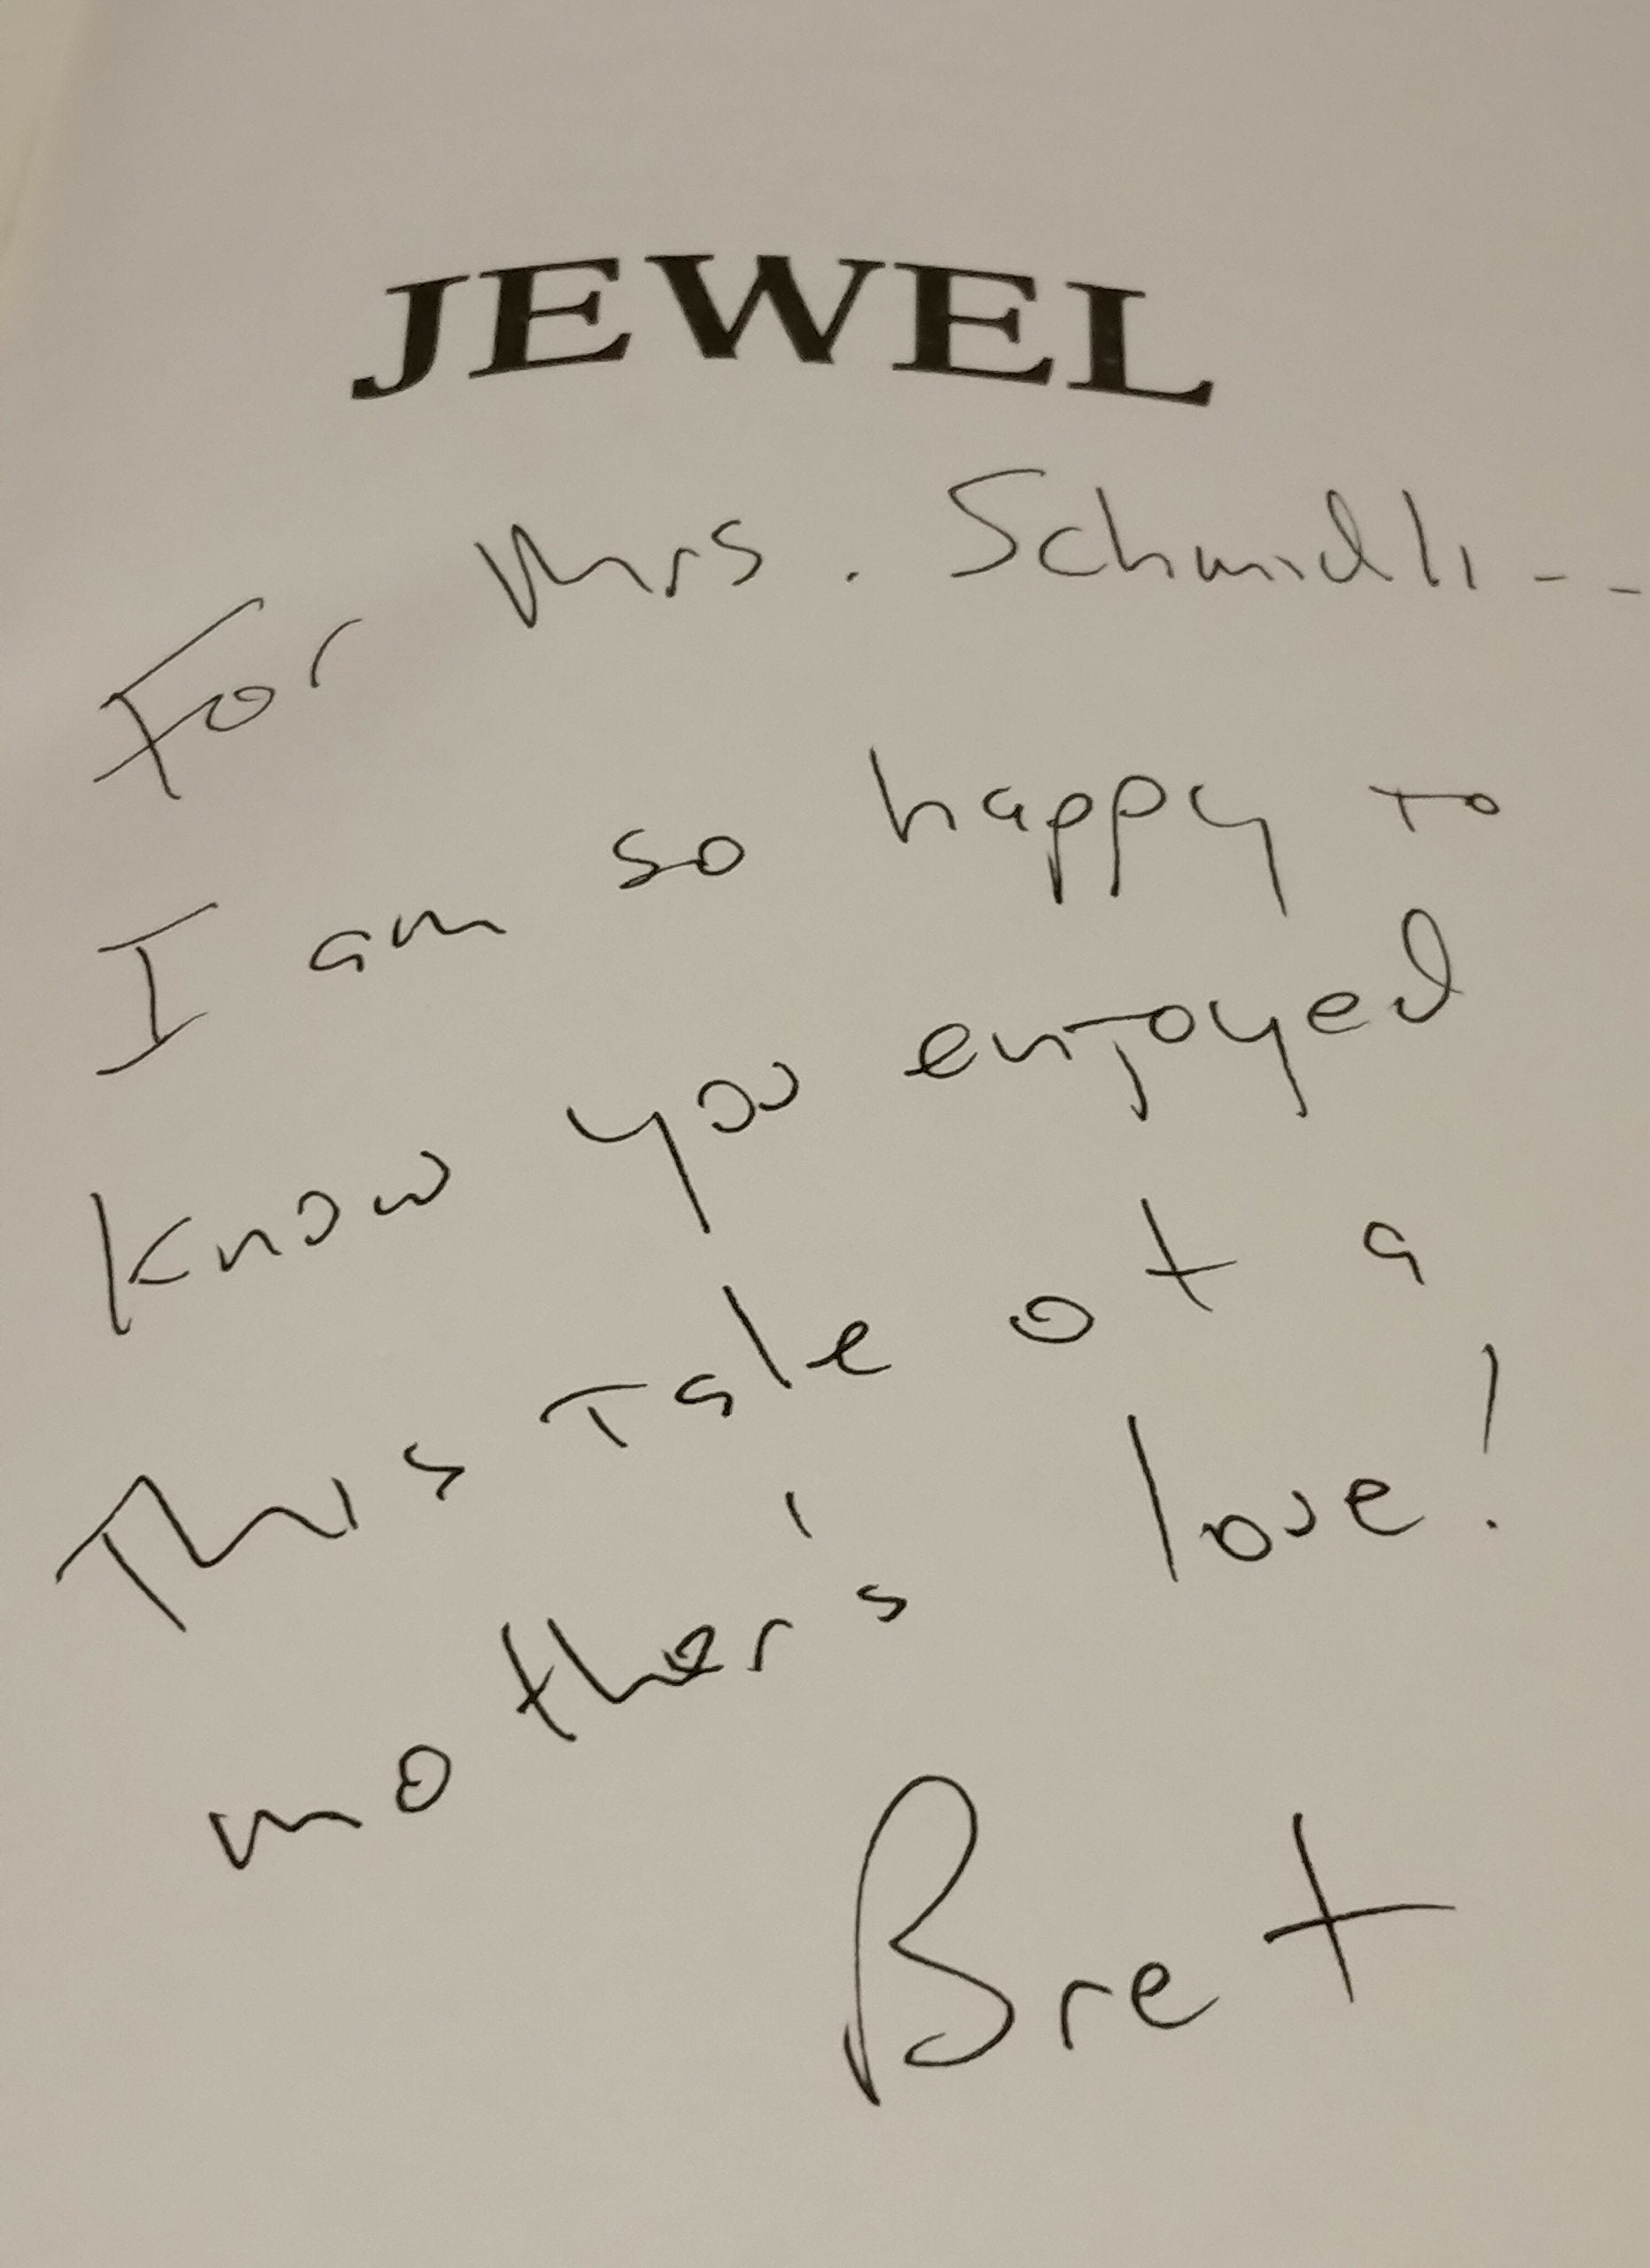 JEWEL
For Mrs. Schmidli--
I am so happy to
know you enjoyed
This tale of a
mother's love!
Bret